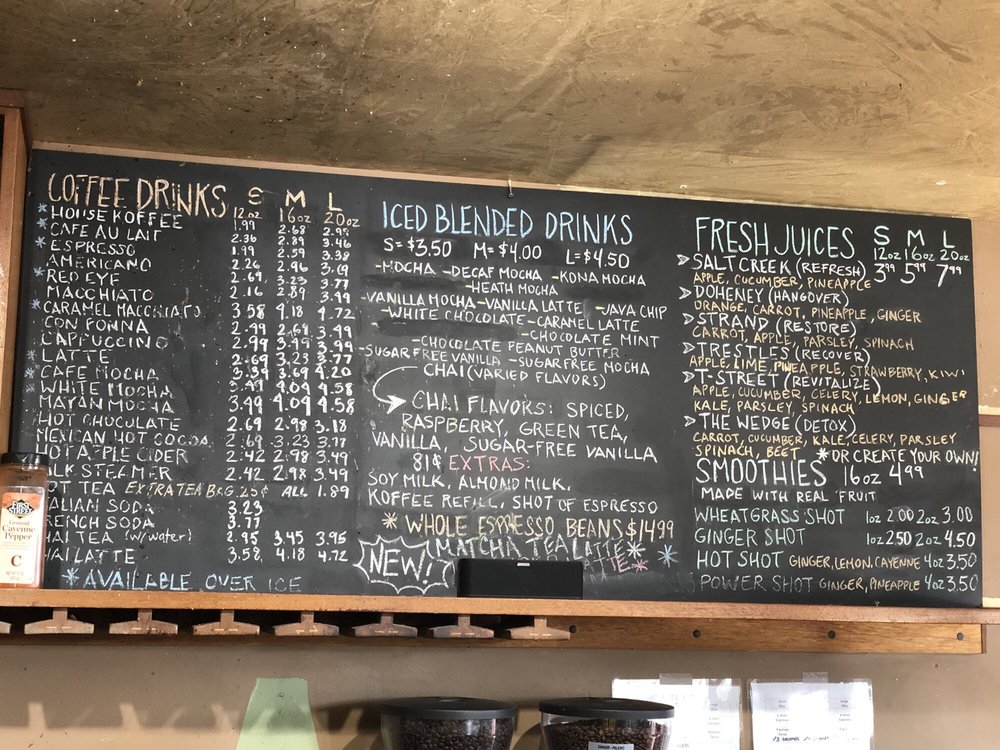 COFFEE DRINKS S M L
12oz 16oz 20oz
* HOUSE KOFFEE 1.99 2.68 2.99
* CAFE AU LAIT 2.36 2.89 3.46
* ESPRESSO 1.99 2.59 3.38
AMERICANO 2.26 2.96 3.69
* RED EYE 2.69 3.23 3.77
MACCHIATO 2.16 2.89 3.99
* CARAMEL MACCHIATO 3.58 4.18 4.72
CON PONNA 2.99 2.68 3.99
CAPPUCCINO 2.99 3.99 3.99
* LATTE 2.69 3.23 3.77
* CAFE MOCHA 3.39 3.69 4.20
* WHITE MOCHA 3.49 4.09 4.58
* MAYAN MOCHA 3.49 4.09 4.58
HOT CHOCULATE 2.69 2.98 3.18
MEXICAN HOT COCOA 2.69 3.23 3.77
HOT APPLE CIDER 2.42 2.98 3.49
LK STEAMER 2.42 2.98 3.49
OT TEA EXTRA TEA BAG .25¢ ALL 1.89
ALIAN SODA 3.23
RENCH SODA 3.77
HAI TEA (w/water) 2.95 3.45 3.95
HAI LATTE 3.58 4.18 4.72
* AVAILABLE OVER ICE
ICED BLENDED DRINKS
S=$3.50 M=$4.00 L=$4.50
-MOCHA -DECAF MOCHA -KONA MOCHA
-HEATH MOCHA
-VANILLA MOCHA -VANILLA LATTE -JAVA CHIP
-WHITE CHOCOLATE -CARAMEL LATTE
-CHOCOLATE MINT
-CHOCOLATE PEANUT BUTTER
-SUGAR FREE VANILLA -SUGAR FREE MOCHA
CHAI (VARIED FLAVORS)
CHAI FLAVORS: SPICED,
RASPBERRY, GREEN TEA,
VANILLA, SUGAR-FREE VANILLA
81¢ EXTRAS:
SOY MILK, ALMOND MILK,
KOFFEE REFILL, SHOT OF ESPRESSO
* WHOLE ESPRESSO BEANS $14.99
NEW! MATCHA TEA LATTE *
FRESH JUICES S M L
12oz 16oz 20oz
SALT CREEK (REFRESH) 3.99 5.99 7.99
APPLE, CUCUMBER, PINEAPPLE
DOHENEY (HANGOVER)
ORANGE, CARROT, PINEAPPLE, GINGER
STRAND (RESTORE)
CARROT, APPLE, PARSLEY, SPINACH
TRESTLES (RECOVER)
APPLE, LIME, PINEAPPLE, STRAWBERRY, KIWI
T-STREET (REVITALIZE)
APPLE, CUCUMBER, CELERY, LEMON, GINGER
KALE, PARSLEY, SPINACH
THE WEDGE (DETOX)
CARROT, CUCUMBER, KALE, CELERY, PARSLEY
SPINACH, BEET *OR CREATE YOUR OWN!
SMOOTHIES 16oz 4.99
MADE WITH REAL FRUIT
WHEATGRASS SHOT 1oz 2.00 2oz 3.00
GINGER SHOT 1oz 2.50 2oz 4.50
HOT SHOT GINGER, LEMON, CAYENNE 4oz 3.50
POWER SHOT GINGER, PINEAPPLE 4oz 3.50
Ground
Cayenne
Pepper
C